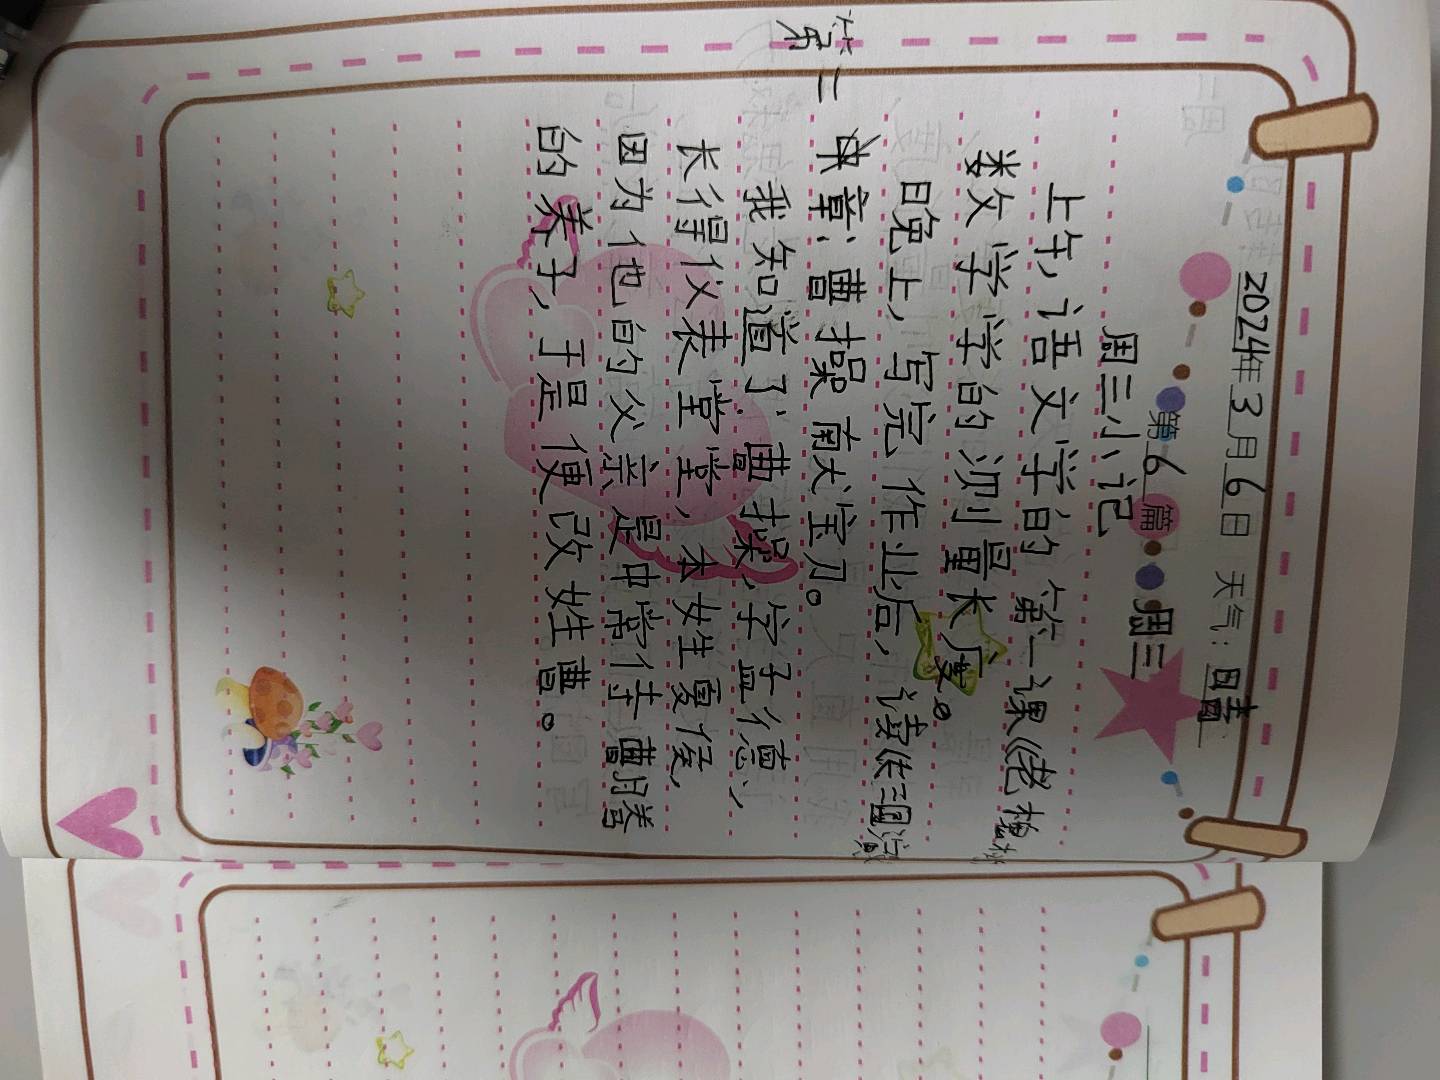 2024年3月6日 天气：晴
周三
第6篇
周三小记
上午，语文学的第一课《老槐树》
数文学学的测量长度。
晚上，写完作业后，读《三国演
第二章：曹操献宝刀。
我知道了：曹操，字孟德，
长得仪表堂堂，本姓夏侯，
因为他的父亲是中常侍曹腾
的养子，于是便改姓曹。